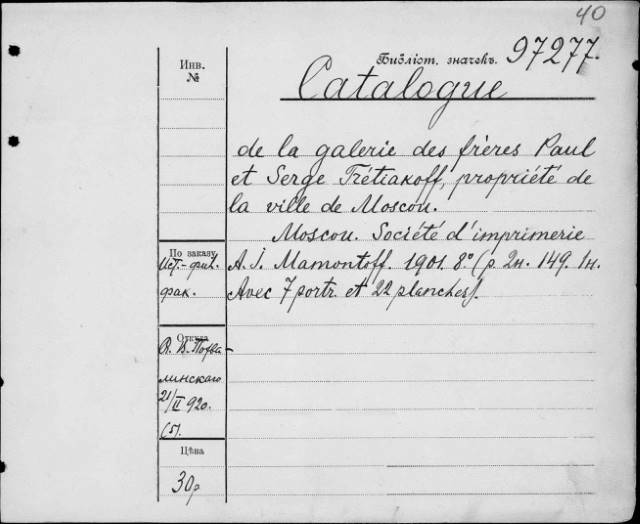 40
Библіот. значекъ. 97277.
Инв.
№
Catalogue
de la galerie des frères Paul
et Serge Trétiakoff, propriété de
la ville de Moscou.
Moscou. Société d'imprimerie
A. J. Mamontoff. 1901. 8° (p. 2н. 149. 1н.
Avec 7 portr. et 22 planches).
По заказу
Ист.-фил.
фак.
Откуда
линскаго
21/II 920.
(5).
Цѣна
30р